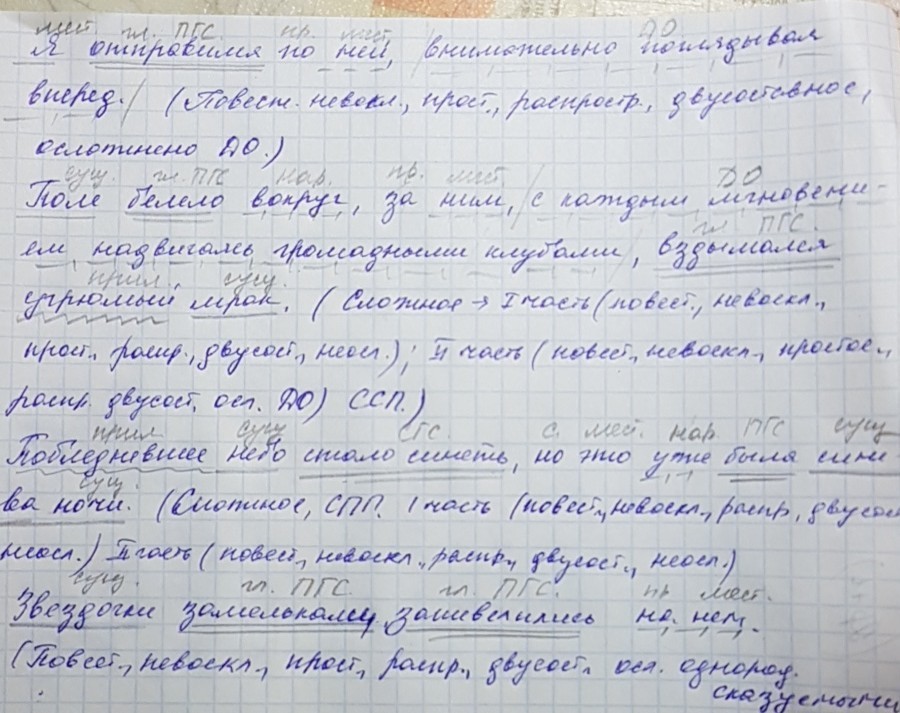 мест. гл. ПГС. пр. мест. ДО
Я отправился по ней, внимательно поглядывая
вперед./ (Повест. невоскл., прост., распростр., двусоставное,
осложнено ДО.)
сущ. гл. ПГС нар. пр. мест ДО
Поле белело вокруг, за ним, /с каждым мгновени-
гл ПГС.
ем надвигаясь громадными клубами/, вздымался
прил. сущ.
угрюмый мрак. (Сложное → I часть (повест., невоскл.,
прост., распр., двусост., неосл.); II часть (повест., невоскл., простое.,
распр. двусост, осл. ДО) ССП.)
прил сущ СГС. с. мест. нар. ПГС сущ
Побледневшее небо стало синеть, но это уже была сине-
сущ.
ва ночи. (Сложное, СПП. I часть (повест., невоскл., распр, двусост
неосл.) II часть (повест., невоскл., распр., двусост., неосл.)
сущ. гл. ПГС. гл. ПГС. пр мест.
Звездочки замелькали, зашевелились на нем.
(Повест., невоскл., прост., распр., двусост. осл. однород.
сказуемыми